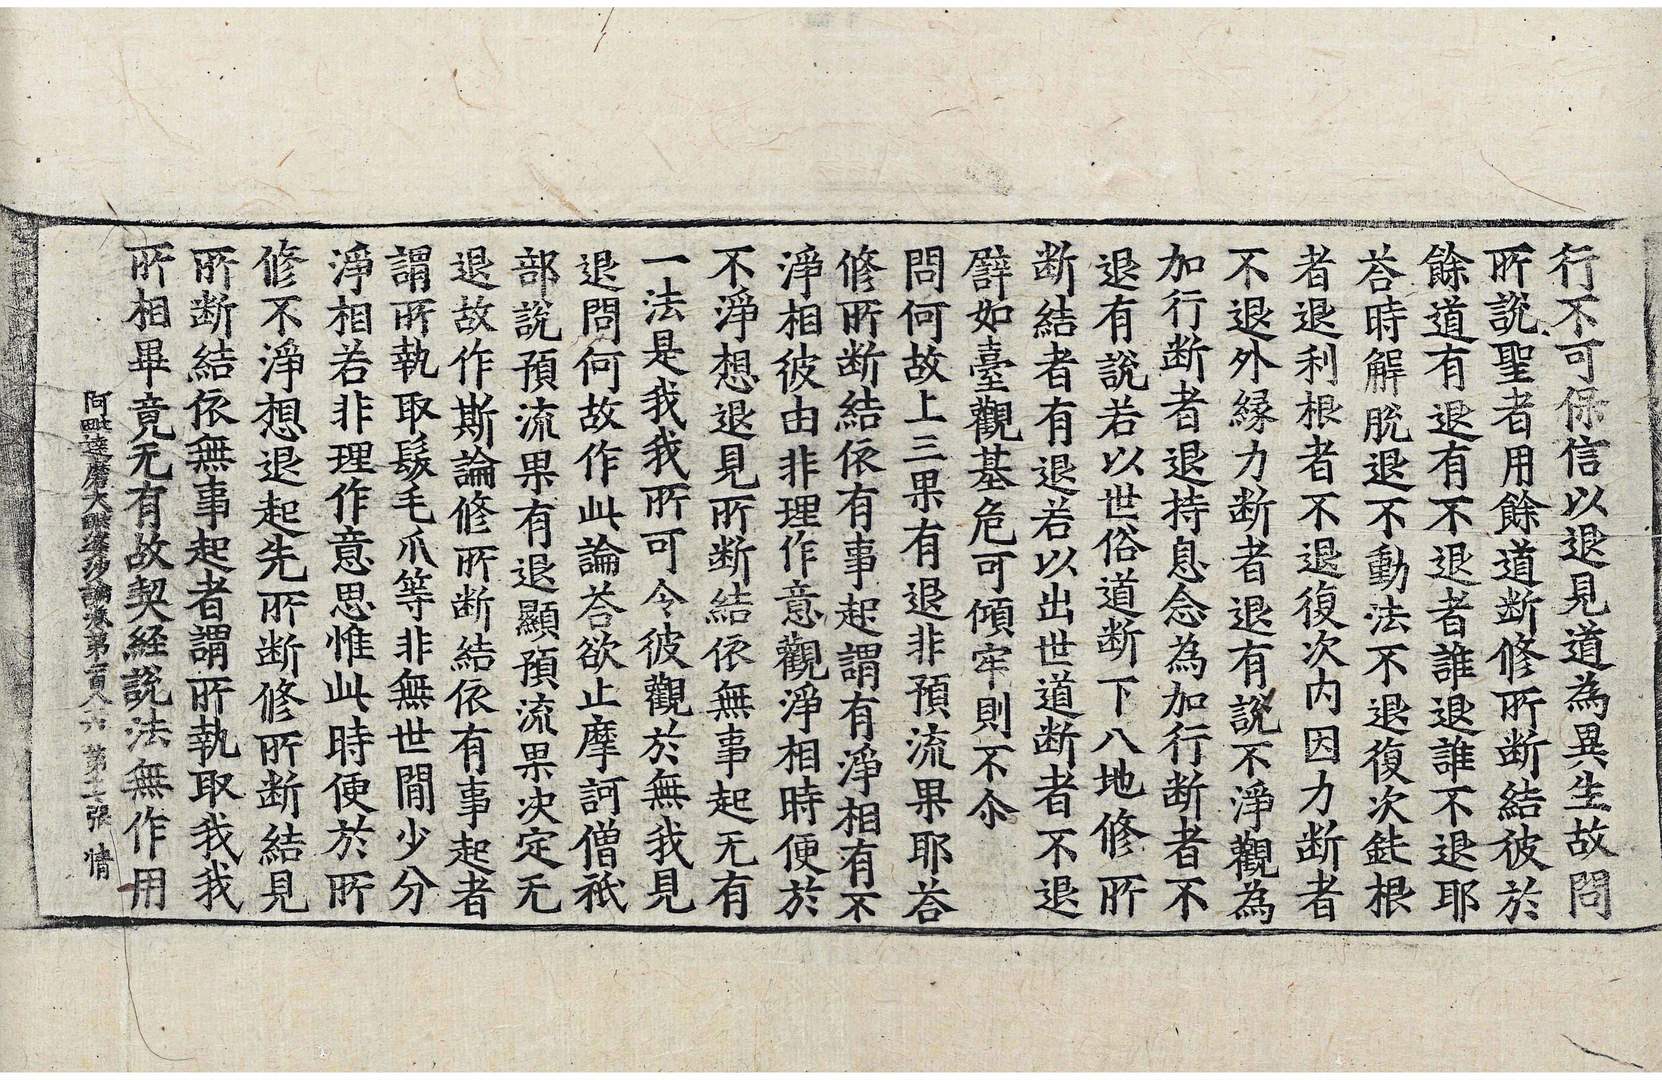 行不可保信以退見道為異生故問
所說聖者用餘道断修所断結彼於
餘道有退有不退者誰退誰不退耶
荅時解脫退不動法不退復次鈍根
者退利根者不退復次内因力断者
不退外縁力断者退有說不淨觀為
加行断者退持息念為加行断者不
退有說若以世俗道断下八地修所
断結者有退若以出世道断者不退
譬如臺觀基危可傾牢則不尒
問何故上三果有退非預流果耶荅
修所断結依有事起謂有淨相有不
淨相彼由非理作意觀淨相時便於
不淨想退見所断結依無事起无有
一法是我我所可令彼觀於無我見
退問何故作此論荅欲止摩訶僧祇
部說預流果有退顯預流果决定无
退故作斯論修所断結依有事起者
謂所執取髮毛爪等非無世間少分
淨相若非理作意思惟此時便於所
修不淨想退起先所断修所断結見
所断結依無事起者謂所執取我我
所相畢竟无有故契経說法無作用
阿毗達磨大毗婆沙論卷第一百八六 第二張 情